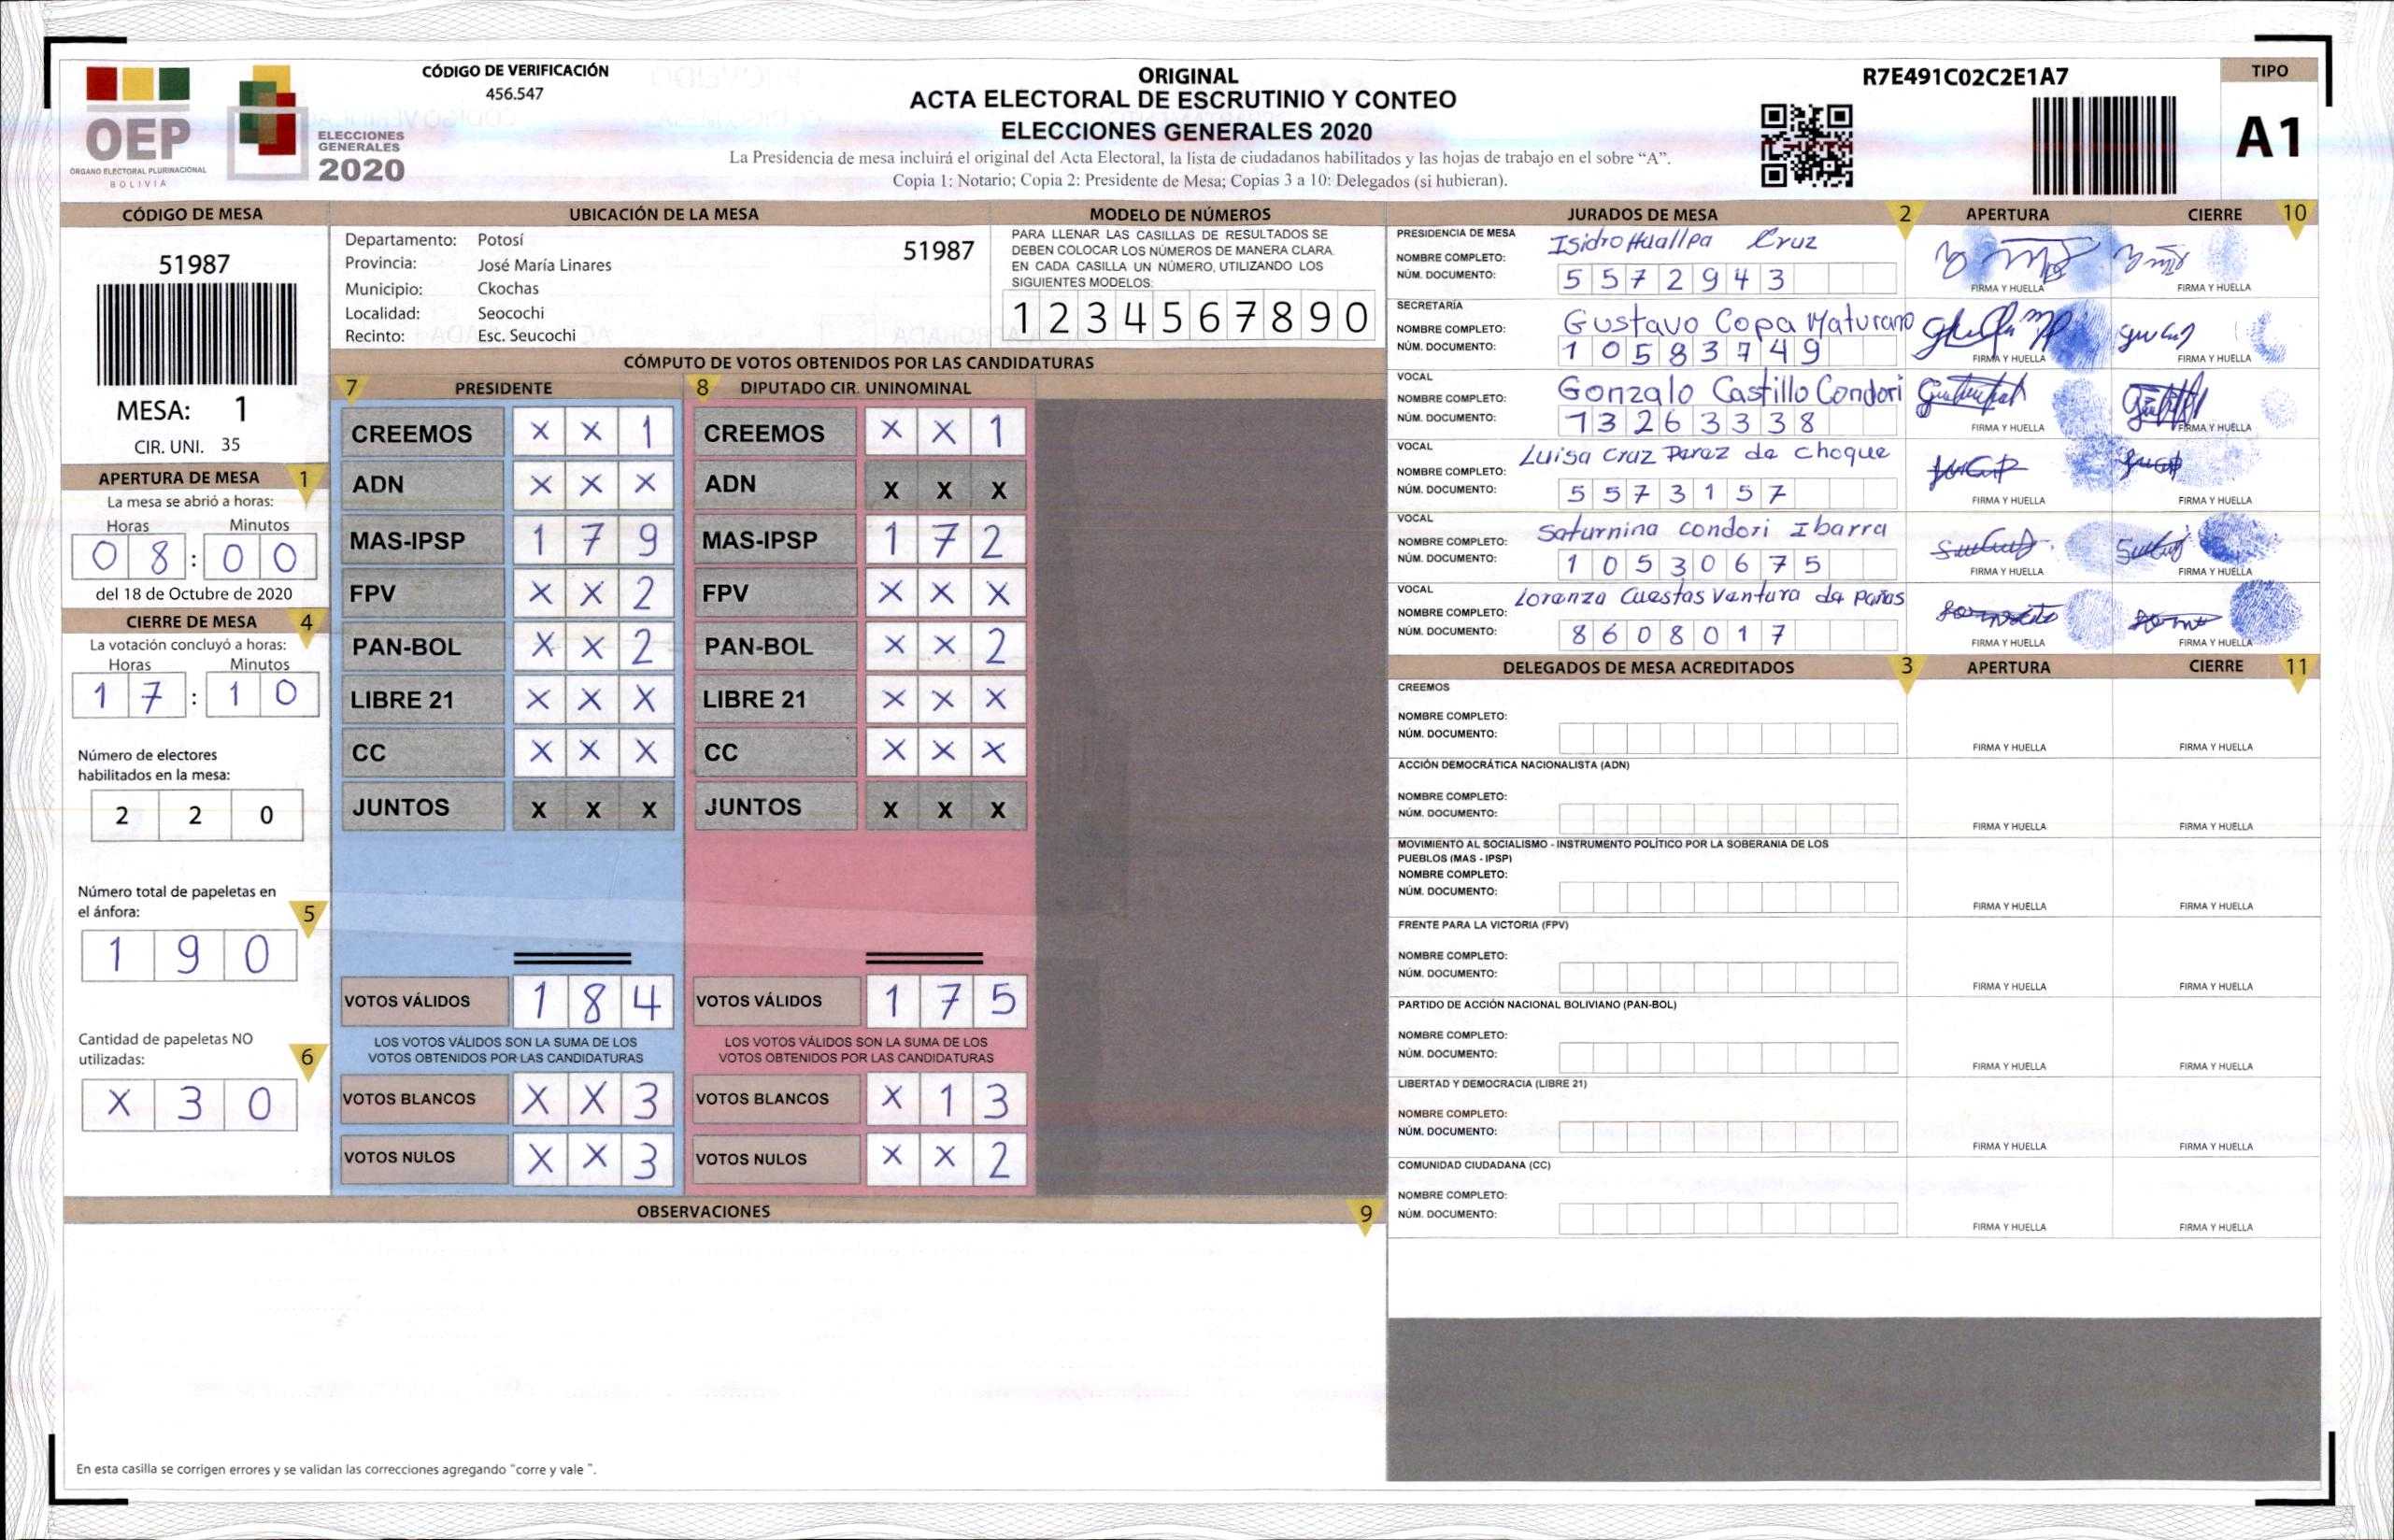 OEP
ÓRGANO ELECTORAL PLURINACIONAL
BOLIVIA
ELECCIONES
GENERALES
2020
CÓDIGO DE VERIFICACIÓN
456.547
ORIGINAL
ACTA ELECTORAL DE ESCRUTINIO Y CONTEO
ELECCIONES GENERALES 2020
La Presidencia de mesa incluirá el original del Acta Electoral, la lista de ciudadanos habilitados y las hojas de trabajo en el sobre “A”.
Copia 1: Notario; Copia 2: Presidente de Mesa; Copias 3 a 10: Delegados (si hubieran).
R7E491C02C2E1A7
TIPO
A1
CÓDIGO DE MESA
51987
MESA: 1
CIR. UNI. 35
APERTURA DE MESA 1
La mesa se abrió a horas:
Horas Minutos
0 8 : 0 0
del 18 de Octubre de 2020
CIERRE DE MESA 4
La votación concluyó a horas:
Horas Minutos
1 7 : 1 0
Número de electores
habilitados en la mesa:
2 2 0
Número total de papeletas en
el ánfora: 5
1 9 0
Cantidad de papeletas NO
utilizadas: 6
X 3 0
UBICACIÓN DE LA MESA
Departamento: Potosí 51987
Provincia: José María Linares
Municipio: Ckochas
Localidad: Seocochi
Recinto: Esc. Seucochi
MODELO DE NÚMEROS
PARA LLENAR LAS CASILLAS DE RESULTADOS SE
DEBEN COLOCAR LOS NÚMEROS DE MANERA CLARA.
EN CADA CASILLA UN NÚMERO, UTILIZANDO LOS
SIGUIENTES MODELOS:
1 2 3 4 5 6 7 8 9 0
CÓMPUTO DE VOTOS OBTENIDOS POR LAS CANDIDATURAS
7 PRESIDENTE
CREEMOS X X 1
ADN X X X
MAS-IPSP 1 7 9
FPV X X 2
PAN-BOL X X 2
LIBRE 21 X X X
CC X X X
JUNTOS X X X
VOTOS VÁLIDOS 1 8 4
LOS VOTOS VÁLIDOS SON LA SUMA DE LOS
VOTOS OBTENIDOS POR LAS CANDIDATURAS
VOTOS BLANCOS X X 3
VOTOS NULOS X X 3
8 DIPUTADO CIR. UNINOMINAL
CREEMOS X X 1
ADN X X X
MAS-IPSP 1 7 2
FPV X X X
PAN-BOL X X 2
LIBRE 21 X X X
CC X X X
JUNTOS X X X
VOTOS VÁLIDOS 1 7 5
LOS VOTOS VÁLIDOS SON LA SUMA DE LOS
VOTOS OBTENIDOS POR LAS CANDIDATURAS
VOTOS BLANCOS X 1 3
VOTOS NULOS X X 2
OBSERVACIONES 9
En esta casilla se corrigen errores y se validan las correcciones agregando “corre y vale ”.
JURADOS DE MESA 2 APERTURA CIERRE 10
PRESIDENCIA DE MESA
NOMBRE COMPLETO: Isidro Huallpa Cruz
NÚM. DOCUMENTO: 5 5 7 2 9 4 3
FIRMA Y HUELLA FIRMA Y HUELLA
SECRETARÍA
NOMBRE COMPLETO: Gustavo Copa Maturano
NÚM. DOCUMENTO: 1 0 5 8 3 7 4 9
FIRMA Y HUELLA FIRMA Y HUELLA
VOCAL
NOMBRE COMPLETO: Gonzalo Castillo Condori
NÚM. DOCUMENTO: 1 3 2 6 3 3 3 8
FIRMA Y HUELLA FIRMA Y HUELLA
VOCAL
NOMBRE COMPLETO: Luisa Cruz Perez de choque
NÚM. DOCUMENTO: 5 5 7 3 1 5 7
FIRMA Y HUELLA FIRMA Y HUELLA
VOCAL
NOMBRE COMPLETO: Saturnina condori Ibarra
NÚM. DOCUMENTO: 1 0 5 3 0 6 7 5
FIRMA Y HUELLA FIRMA Y HUELLA
VOCAL
NOMBRE COMPLETO: Lorenza Cuestas Ventura de
NÚM. DOCUMENTO: 8 6 0 8 0 1 7
FIRMA Y HUELLA FIRMA Y HUELLA
DELEGADOS DE MESA ACREDITADOS 3 APERTURA CIERRE 11
CREEMOS
NOMBRE COMPLETO:
NÚM. DOCUMENTO:
FIRMA Y HUELLA FIRMA Y HUELLA
ACCIÓN DEMOCRÁTICA NACIONALISTA (ADN)
NOMBRE COMPLETO:
NÚM. DOCUMENTO:
FIRMA Y HUELLA FIRMA Y HUELLA
MOVIMIENTO AL SOCIALISMO - INSTRUMENTO POLÍTICO POR LA SOBERANIA DE LOS
PUEBLOS (MAS - IPSP)
NOMBRE COMPLETO:
NÚM. DOCUMENTO:
FIRMA Y HUELLA FIRMA Y HUELLA
FRENTE PARA LA VICTORIA (FPV)
NOMBRE COMPLETO:
NÚM. DOCUMENTO:
FIRMA Y HUELLA FIRMA Y HUELLA
PARTIDO DE ACCIÓN NACIONAL BOLIVIANO (PAN-BOL)
NOMBRE COMPLETO:
NÚM. DOCUMENTO:
FIRMA Y HUELLA FIRMA Y HUELLA
LIBERTAD Y DEMOCRACIA (LIBRE 21)
NOMBRE COMPLETO:
NÚM. DOCUMENTO:
FIRMA Y HUELLA FIRMA Y HUELLA
COMUNIDAD CIUDADANA (CC)
NOMBRE COMPLETO:
NÚM. DOCUMENTO:
FIRMA Y HUELLA FIRMA Y HUELLA